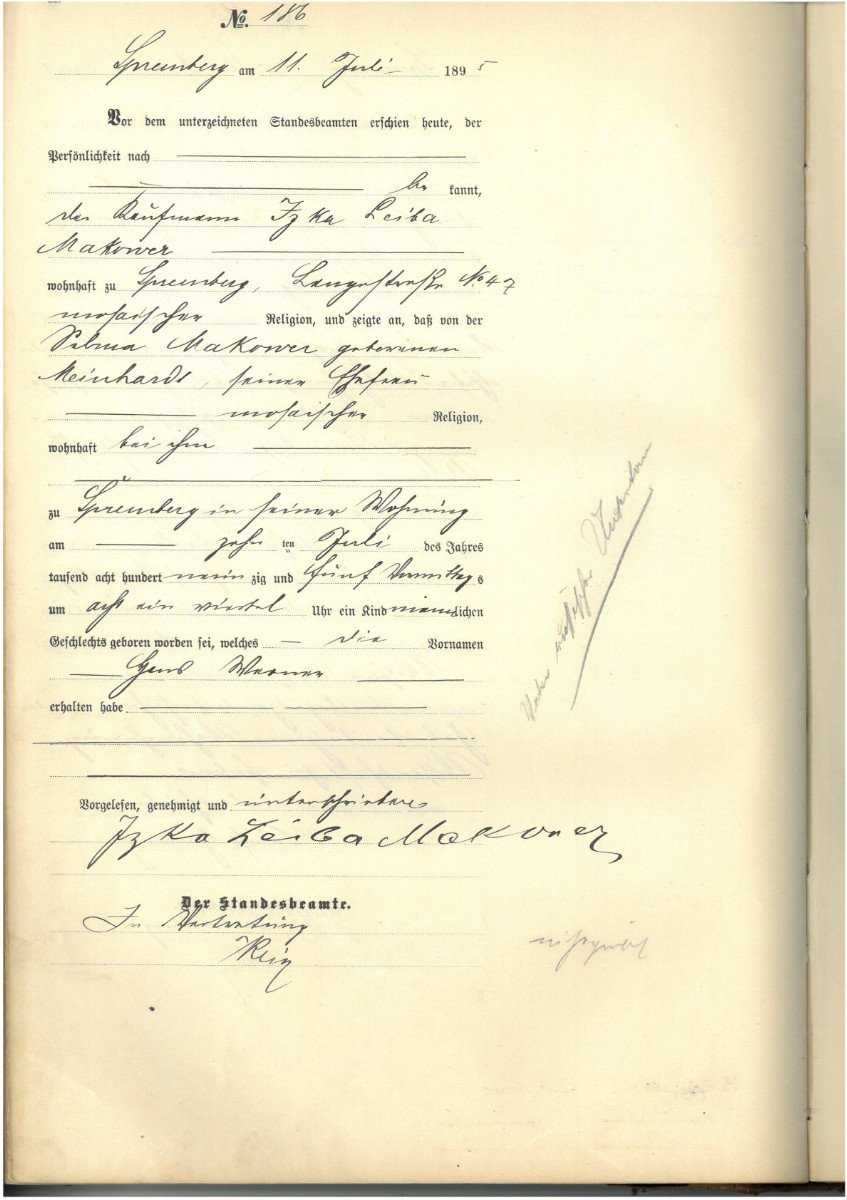 No. 186
Spremberg am 11. Juli 1895
Vor dem unterzeichneten Standesbeamten erschien heute, der
Persönlichkeit nach
be kannt,
der Kaufmann Izka Leiba
Makower
wohnhaft zu Spremberg, Langestraße No. 47
mosaischer Religion, und zeigte an, daß von der
Selma Makower geborenen
Meinhardt, seiner Ehefrau
mosaischer Religion,
wohnhaft bei ihm
zu Spremberg in seiner Wohnung
am zehn ten Juli des Jahres
tausend acht hundert neun zig und fünf Vormittags
um acht ein viertel Uhr ein Kind männlichen
Geschlechts geboren worden sei, welches die Vornamen
Hans Werner
erhalten habe
Vorgelesen, genehmigt und unterschrieben
Izka Leiba Makower
Der Standesbeamte.
In Vertretung
Vater russischer Unterthan